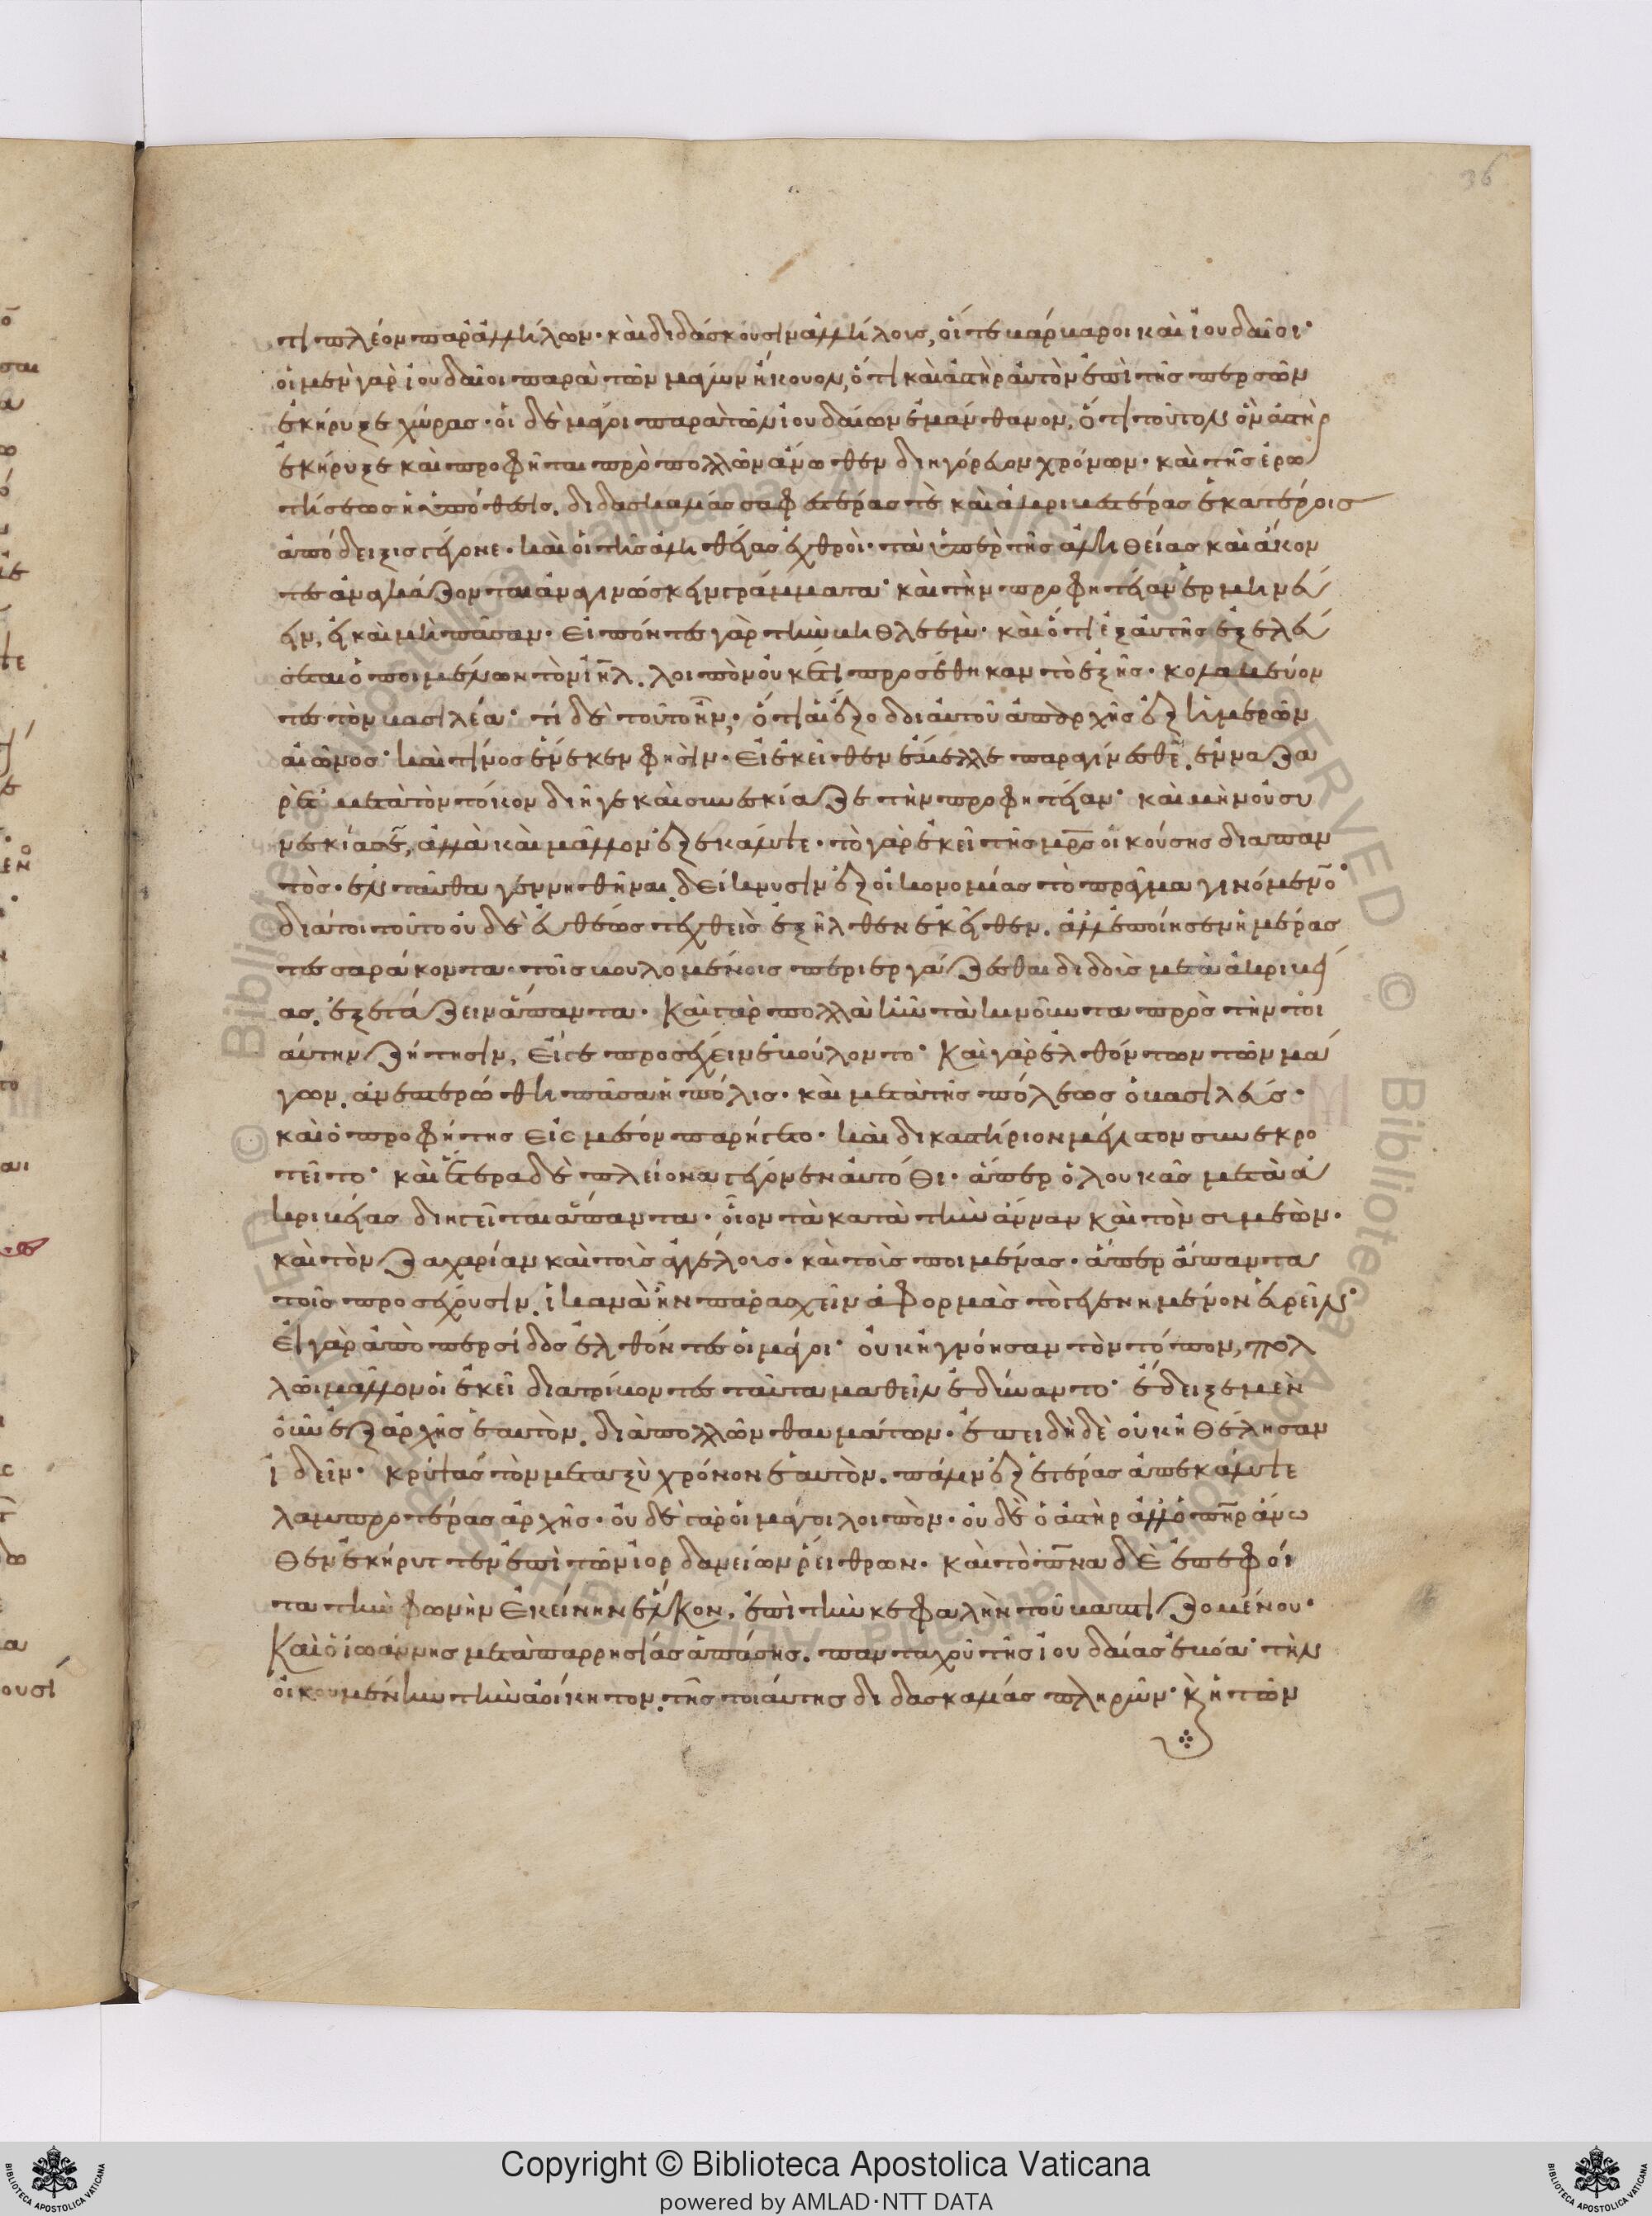 36
τι πλέον παρ' ἀλλήλων· καὶ διδάσκουσιν ἀλλήλους, οἵ τε βάρβαροι καὶ ἰουδαῖοι·
οἱ μὲν γὰρ ἰουδαῖοι παρὰ τῶν μάγων ἤκουον, ὅτι καὶ ἀστὴρ αὐτὸν ἐπὶ τῆς περσῶν
ἐκήρυξε χώρας· οἱ δὲ μάγοι παρὰ τῶν ἰουδαίων ἐμάνθανον, ὅτι τοῦτον ὃν ἀστὴρ
ἐκήρυξε καὶ προφῆται πρὸ πολλῶν ἄνωθεν διηγόρευον χρόνων· καὶ τῆς ἐρω
τήσεως ἡ ὑπόθεσις, διδασκαλίας σαφεστέρας τὲ καὶ ἀκριβεστέρας ἑκατέροις
ἀπόδειξις γέγονε· καὶ οἱ τῆς ἀληθείας ἐχθροὶ· τὰ ὑπὲρ τῆς ἀληθείας καὶ ἄκον
τες ἀναγκάζονται ἀναγινώσκειν γράμματα· καὶ τὴν προφητείαν ἑρμηνεύ
ειν, εἰ καὶ μὴ πᾶσαν· Εἰπόντες γὰρ τὴν βηθλεέμ· καὶ ὅτι ἐξ αὐτῆς ἐξελεύ
σεται ὁ ποιμαίνων τὸν ἰηλ. λοιπὸν οὐκέτι προσέθηκαν τὸ ἑξῆς· κολακεύον
τες τὸν βασιλέα· τί δὲ τοῦτο ἦν; ὅτι αἱ ἔξοδοι αὐτοῦ ἀπαρχῆς ἐξ ἡμερῶν
αἰῶνος· καὶ τίνος ἕνεκεν φησὶν· Εἰ ἐκεῖθεν ἔμελλε παραγίνεσθαι. ἐν ναζα
ρὲτ μετὰ τὸν τόκον διῆγε καὶ συνεσκίαζε τὴν προφητείαν· καὶ μὴν οὐ συ
νεσκίασεν, ἀλλὰ καὶ μᾶλλον ἐξεκάλυψε· τὸ γὰρ ἐκεῖ τῆς μρς οἰκούσης διαπαν
τὸς· ἐνταῦθα γεννηθῆναι. δείκνυσιν ἐξ οἰκονομίας τὸ πρᾶγμα γινόμενον·
διάτοι τοῦτο οὐδὲ εὐθέως τεχθεὶς ἐξῆλθεν ἐκεῖθεν. ἀλλ' ἐποίησεν ἡμέρας
τεσσαράκοντα· τοῖς βουλομένοις περιεργάζεσθαι διδοὺς μετὰ ἀκριβεί
ας. ἐξετάζειν ἅπαντα. Καὶ γὰρ πολλὰ ἦν τὰ κινοῦντα πρὸς τὴν τοι
αύτην ζήτησιν, εἴγε προσέχειν ἐβούλοντο· Καὶ γὰρ ἐλθόντων τῶν μά
γων. ἀνεπτερώθη πᾶσα ἡ πόλις· καὶ μετὰ τῆς πόλεως ὁ βασιλεύς·
καὶ ὁ προφήτης εἰς μέσον παρήγετο· καὶ δικαστήριον μέγιστον συνεκρο
τεῖτο· καὶ ἕτερα δὲ πλείονα γέγονεν αὐτόθι· ἅπερ ὁ λουκᾶς μετὰ ἀ
κριβείας διηγεῖται ἅπαντα· οἷον τὰ κατὰ τὴν ἄνναν καὶ τὸν συμεὼν·
καὶ τὸν ζαχαρίαν καὶ τοὺς ἀγγέλους· καὶ τοὺς ποιμένας· ἅπερ ἅπαντα
τοῖς προσέχουσιν. ἱκανὰ ἦν παρασχεῖν ἀφορμὰς τὸ γεγενημένον εὑρεῖν·
Εἰ γὰρ ἀπὸ περσίδος ἐλθόντες οἱ μάγοι· οὐκ ἠγνόησαν τὸν τόπον, πολ
λῶι μᾶλλον οἱ ἐκεῖ διατρίβοντες ταῦτα μαθεῖν ἐδύναντο· ἔδειξε μὲν
οὖν ἐξ ἀρχῆς ἑαυτὸν. διὰ πολλῶν θαυμάτων· ἐπειδὴ δὲ οὐκ ἠθέλησαν
ἰδεῖν· κρύψας τὸν μεταξὺ χρόνον ἑαυτὸν. πάλιν ἐξ ἑτέρας ἀπεκάλυψε
λαμπροτέρας ἀρχῆς· οὐδὲ γὰρ οἱ μάγοι λοιπὸν· οὐδὲ ὁ ἀστὴρ ἀλλ' ὁ πηρ ἄνω
θεν ἐκήρυττεν ἐπὶ τῶν ἰορδανείων ῥείθρων· καὶ τὸ πνα δὲ ἐπεφοί
τα τὴν φωνὴν ἐκείνην ἕλκον, ἐπὶ τὴν κεφαλὴν τοῦ βαπτιζομένου·
Καὶ ὁ ἰωάννης μετὰ παρρησίας ἁπάσης. πανταχοῦ τῆς ἰουδαίας ἐβόα· τὴν
οἰκουμένην τὴν ἀοίκητον. τῆς τοιαύτης διδασκαλίας πληρῶν· κ ἡ τῶν